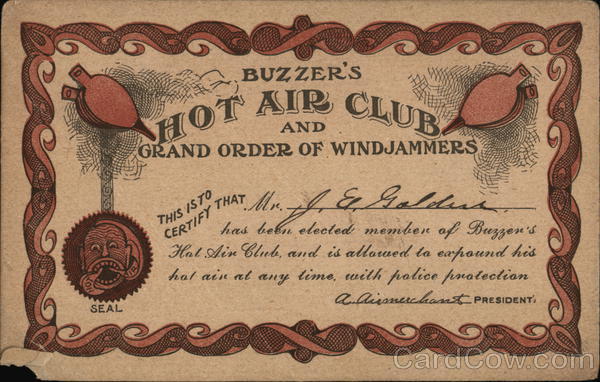 BUZZER'S
HOT AIR CLUB
AND
GRAND ORDER OF WINDJAMMERS
THIS IS TO
CERTIFY THAT
Mr. J. E. Golden
has been elected member of Buzzer's
Hot Air Club, and is allowed to expound his
hot air at any time, with police protection
A. Airmerchant PRESIDENT.
SEAL
CardCow.com